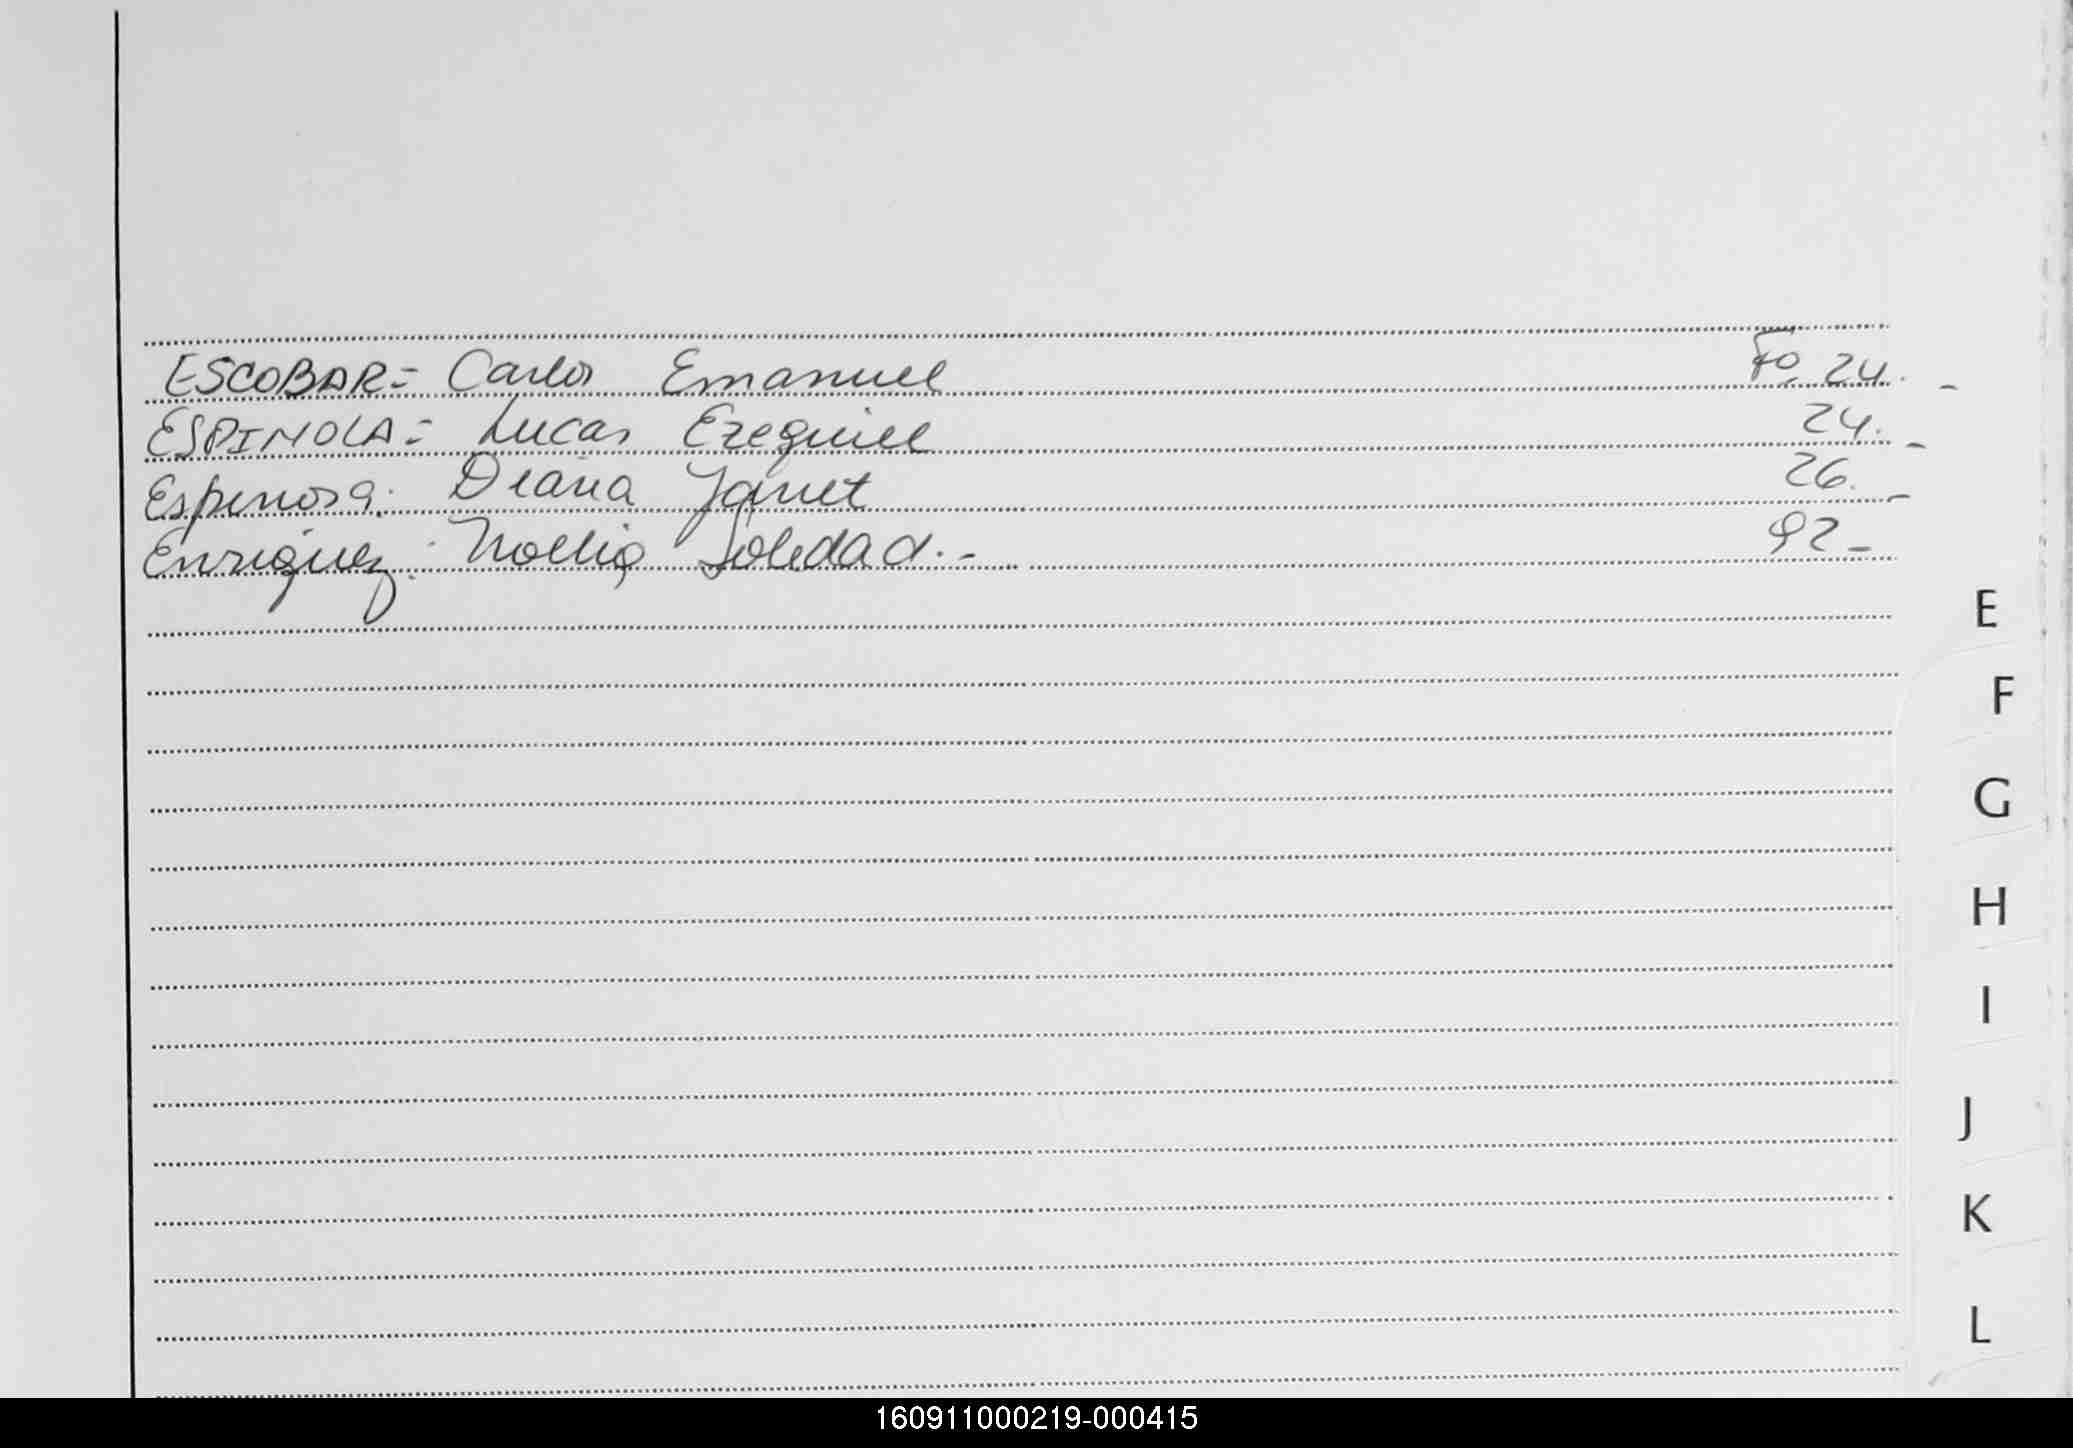 ESCOBAR= Carlos Emanuel Fo 24.-
ESPINOLA= Lucas Ezequiel 24.-
Espinosa: Diana Janet 26.-
Enriquez: Noelia Soledad.- 92-
E
F
G
H
I
J
K
L
160911000219-000415